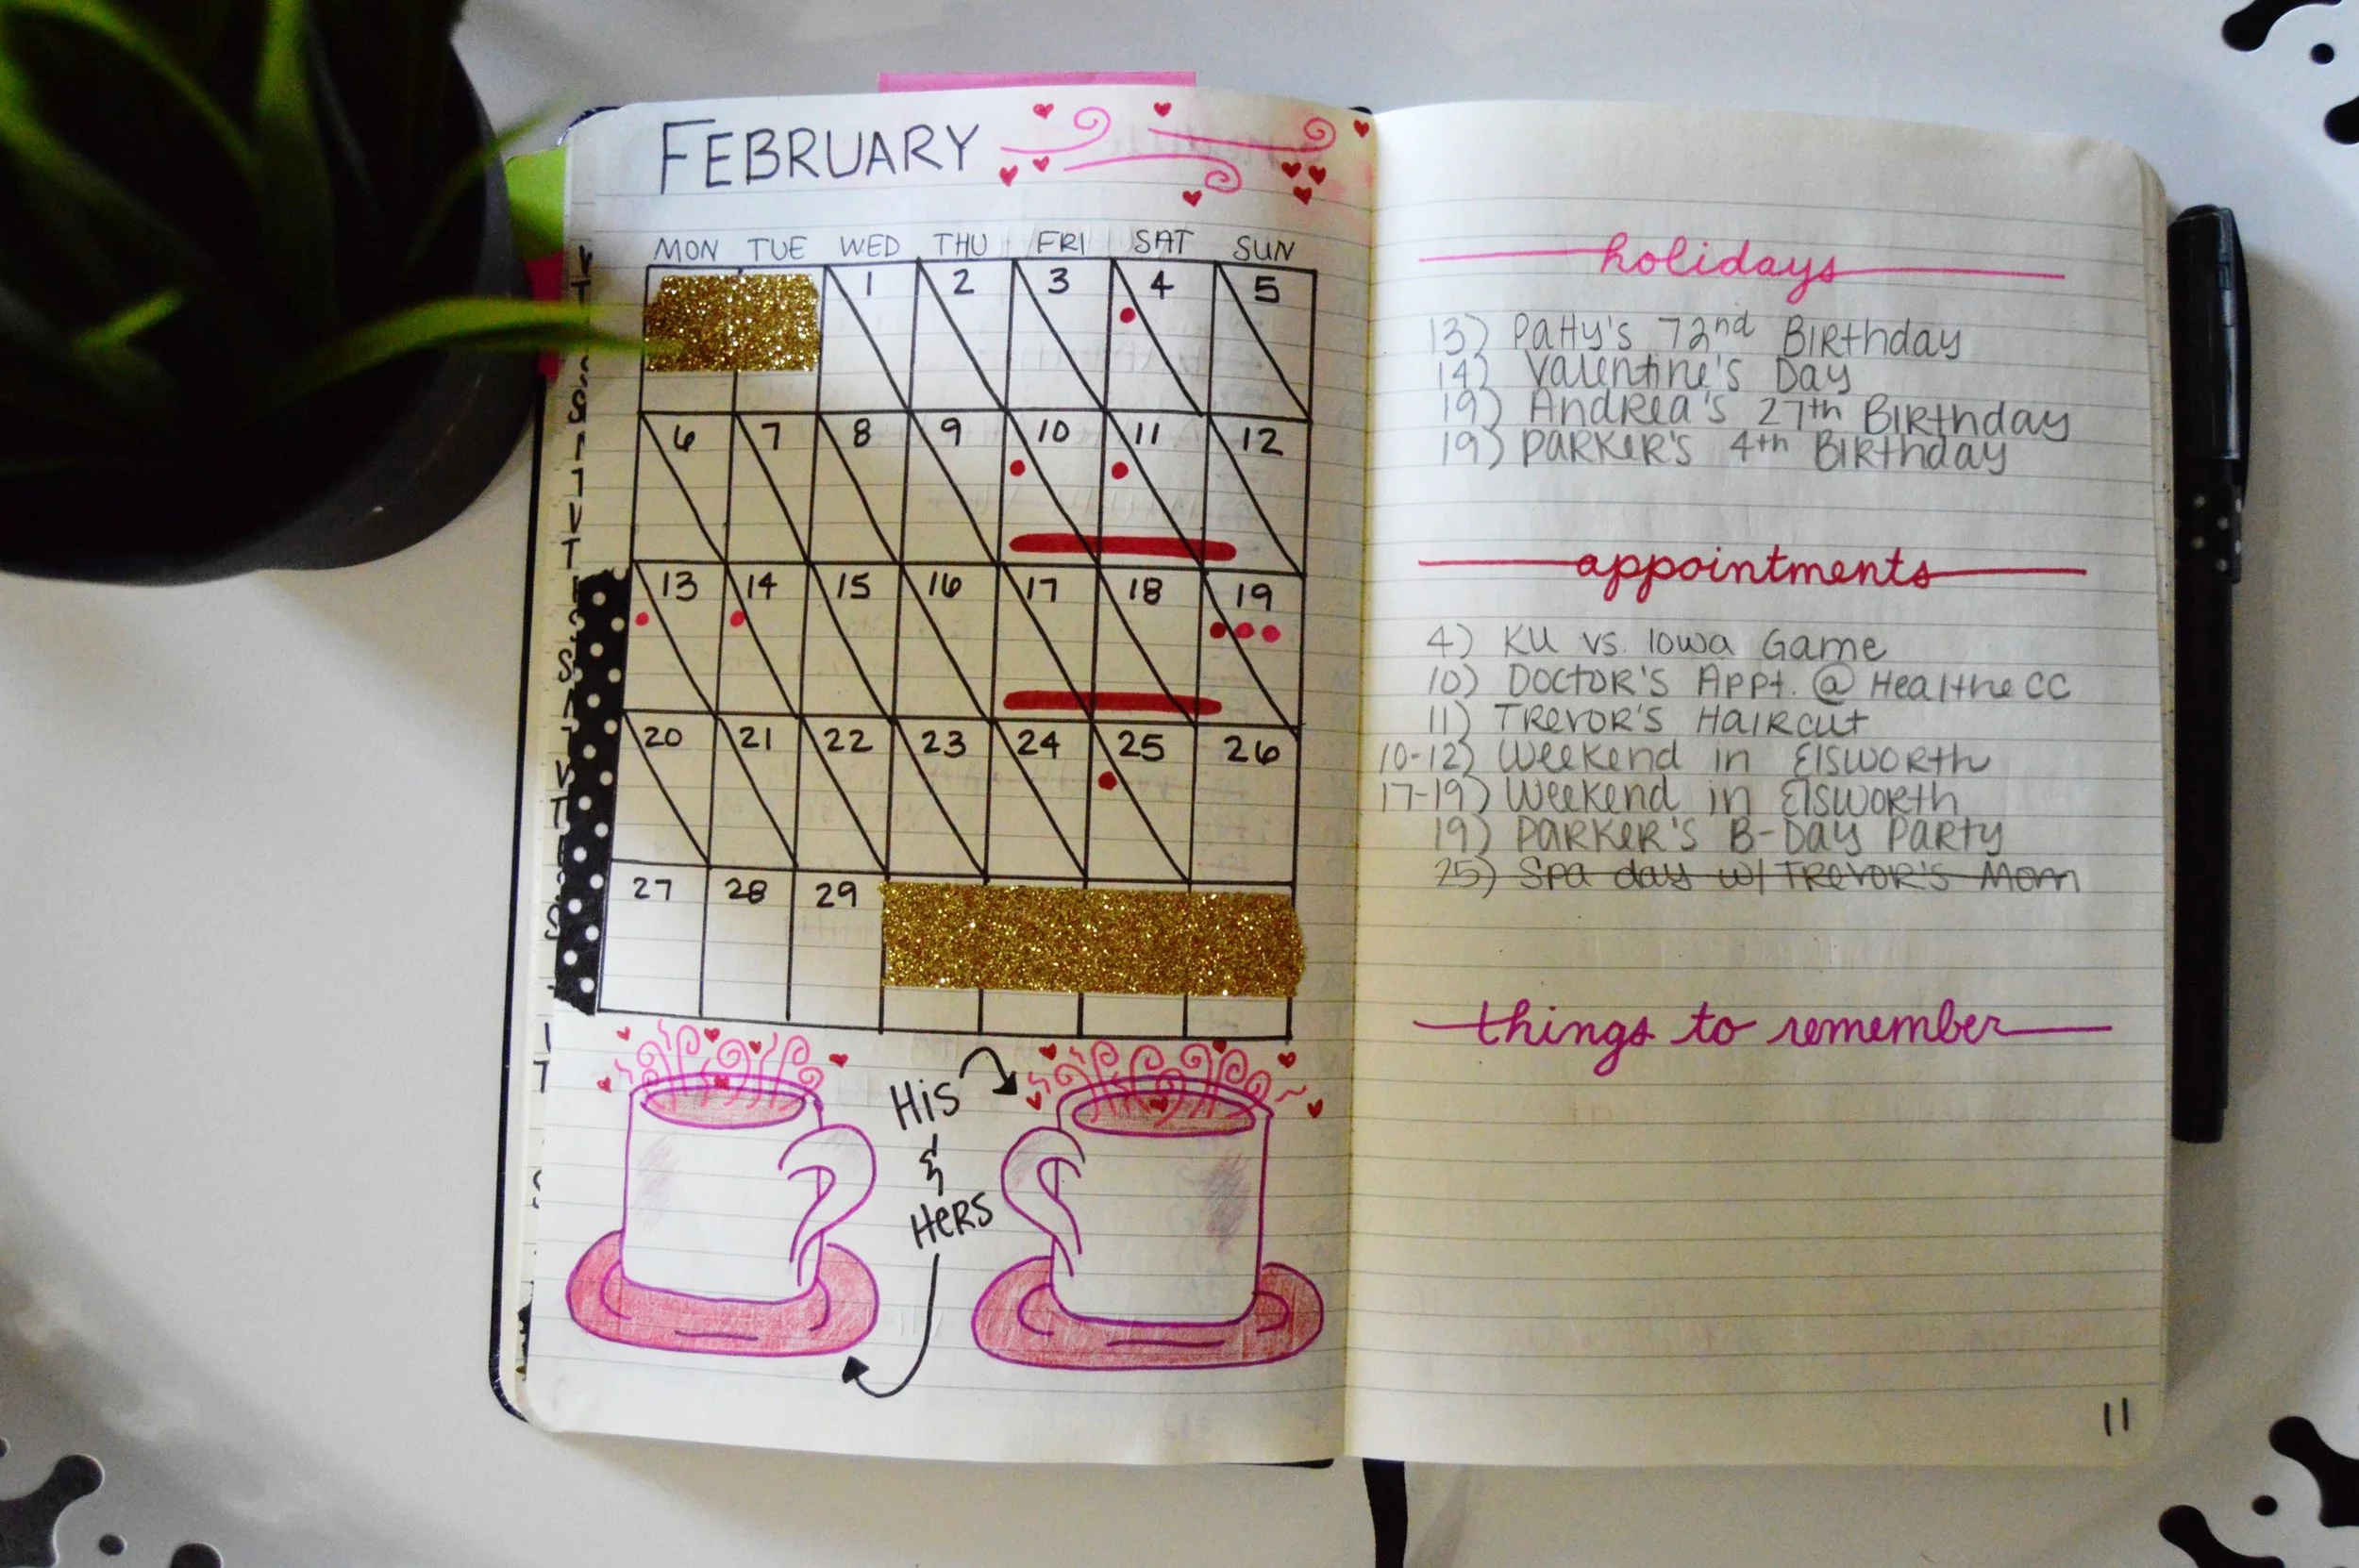 FEBRUARY
MON TUE WED THU FRI SAT SUN
1 2 3 4 5
6 7 8 9 10 11 12
13 14 15 16 17 18 19
20 21 22 23 24 25 26
27 28 29
His
&
Hers
holidays
13) Patty's 72nd Birthday
14) Valentine's Day
19) Andrea's 27th Birthday
19) Parker's 4th Birthday
appointments
4) KU vs. Iowa Game
10) Doctor's Appt. @ Healthe CC
11) Trevor's Haircut
10-12) Weekend in Elsworth
17-19) Weekend in Elsworth
19) Parker's B-Day Party
25) Spa day w/ Trevor's Mom
things to remember
11